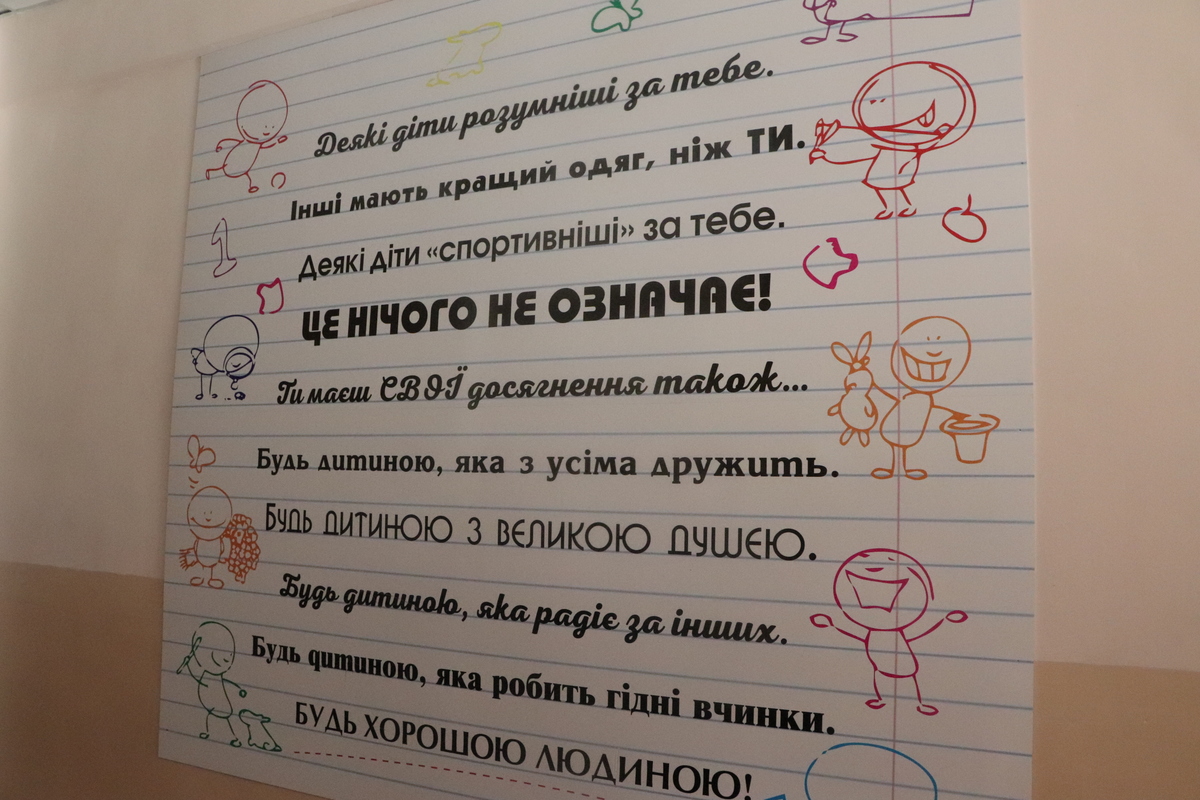 Деякі діти розумніші за тебе.
Інші мають кращий одяг, ніж ТИ.
Деякі діти «спортивніші» за тебе.
ЦЕ НІЧОГО НЕ ОЗНАЧАЄ!
Ти маєш СВОЇ досягнення також...
Будь дитиною, яка з усіма дружить.
БУДЬ ДИТИНОЮ З ВЕЛИКОЮ ДУШЕЮ.
Будь дитиною, яка радіє за інших.
Будь дитиною, яка робить гідні вчинки.
БУДЬ ХОРОШОЮ ЛЮДИНОЮ!